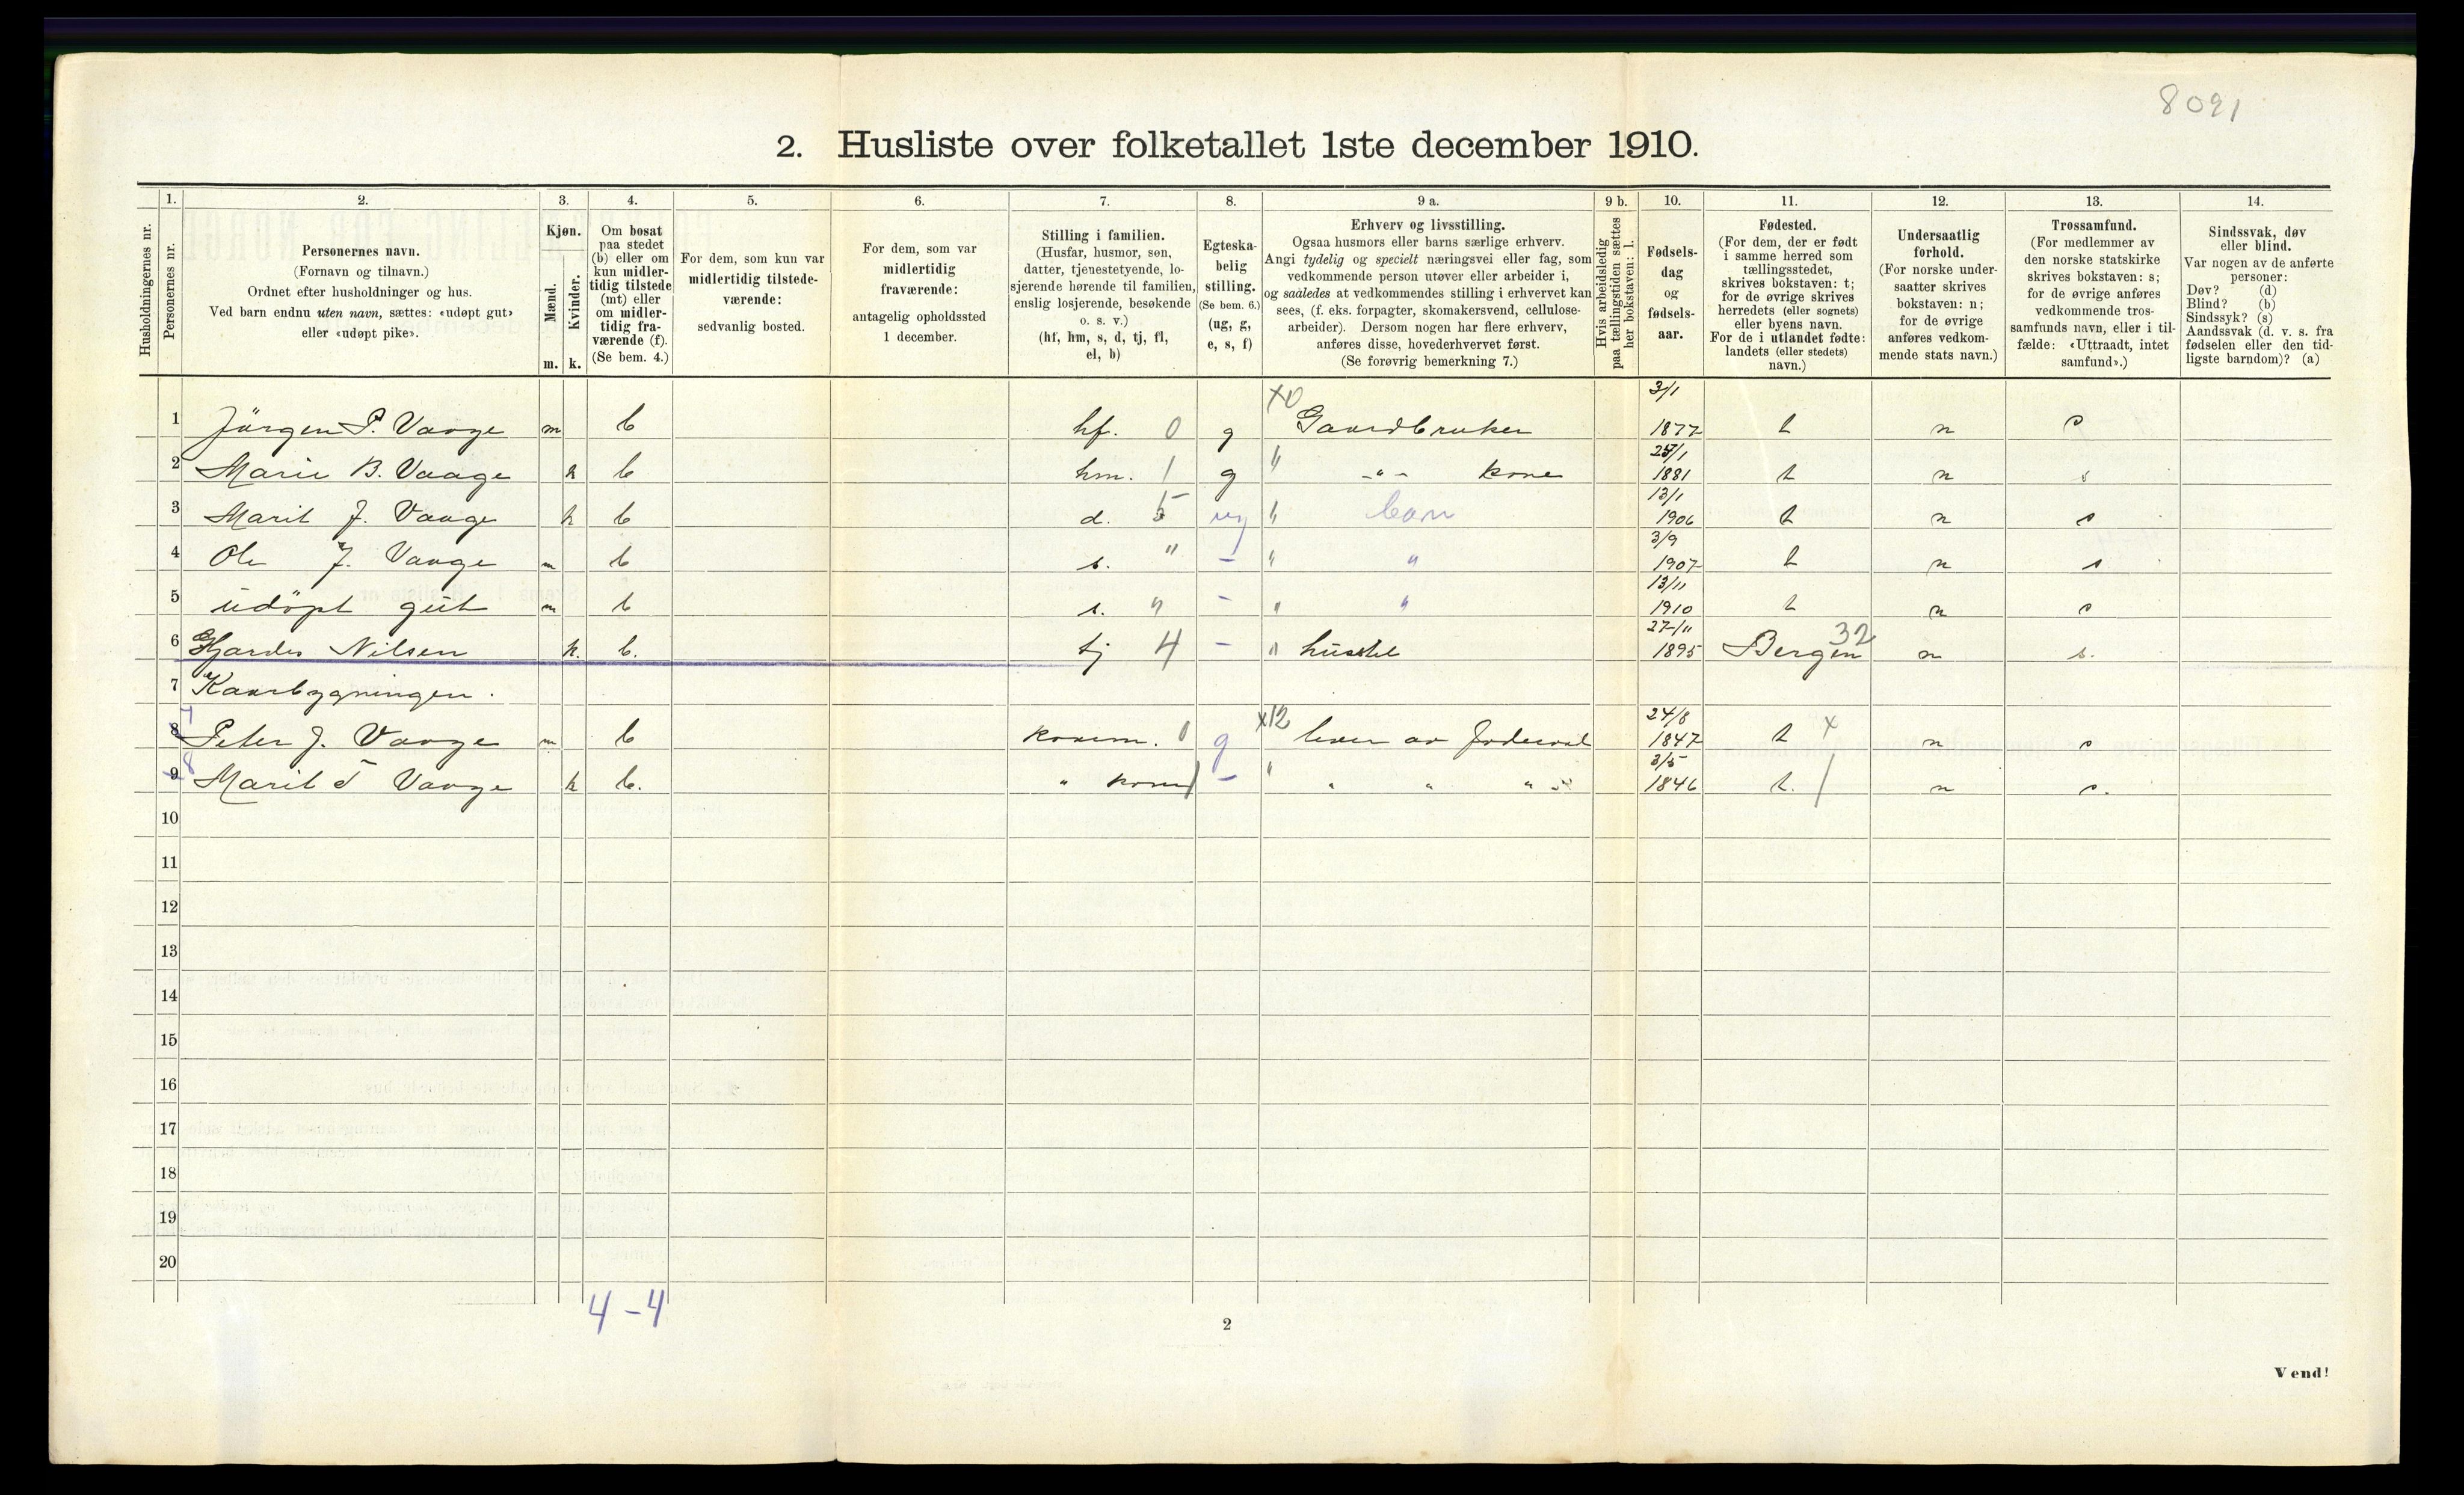 8091
2. Husliste over folketallet 1ste december 1910.
1. 2. 3. 4. 5. 6. 7. 8. 9 a. 9 b. 10. 11. 12. 13. 14.
Husholdningernes nr.
Personernes nr.
Personernes navn.
(Fornavn og tilnavn.)
Ordnet efter husholdninger og hus.
Ved barn endnu uten navn, sættes: «udøpt gut»
eller «udøpt pike».
Kjøn.
Mænd.
Kvinder.
m. k.
Om bosat
paa stedet
(b) eller om
kun midler-
tidig tilstede
(mt) eller
om midler-
tidig fra-
værende (f).
(Se bem. 4.)
For dem, som kun var
midlertidig tilstede-
værende:
sedvanlig bosted.
For dem, som var
midlertidig
fraværende:
antagelig opholdssted
1 december.
Stilling i familien.
(Husfar, husmor, søn,
datter, tjenestetyende, lo-
sjerende hørende til familien,
enslig losjerende, besøkende
o. s. v.)
(hf, hm, s, d, tj, fl,
el, b)
Egteska-
belig
stilling.
(Se bem. 6.)
(ug, g,
e, s, f)
Erhverv og livsstilling.
Ogsaa husmors eller barns særlige erhverv.
Angi tydelig og specielt næringsvei eller fag, som
vedkommende person utøver eller arbeider i,
og saaledes at vedkommendes stilling i erhvervet kan
sees, (f. eks. forpagter, skomakersvend, cellulose-
arbeider). Dersom nogen har flere erhverv,
anføres disse, hovederhvervet først.
(Se forøvrig bemerkning 7.)
Hvis arbeidsledig
paa tællingstiden sættes
her bokstaven: l.
Fødsels-
dag
og
fødsels-
aar.
Fødested.
(For dem, der er født
i samme herred som
tællingsstedet,
skrives bokstaven: t;
for de øvrige skrives
herredets (eller sognets)
eller byens navn.
For de i utlandet fødte:
landets (eller stedets)
navn.)
Undersaatlig
forhold.
(For norske under-
saatter skrives
bokstaven: n;
for de øvrige
anføres vedkom-
mende stats navn.)
Trossamfund.
(For medlemmer av
den norske statskirke
skrives bokstaven: s;
for de øvrige anføres
vedkommende tros-
samfunds navn, eller i til-
fælde: «Uttraadt, intet
samfund».)
Sindssvak, døv
eller blind.
Var nogen av de anførte
personer:
Døv? (d)
Blind? (b)
Sindssyk? (s)
Aandssvak (d. v. s. fra
fødselen eller den tid-
ligste barndom)? (a)
1 Jörgen P. Vaage m b hf. 0 g x0 Gaardbruker 3/1 1877 t n s
2 Marie B. Vaage k b hm. 1 g " -"- kone 1881 t n s
3 Marit J. Vaage k b d. 5 ug " barn 13/1 1906 t n s
4 Ole J. Vaage m b s. " - " " 3/9 1907 t n s
5 udöpt gut m b s. " - " " 13/11 1910 t n s
6 Nilsen k. b. tj 4 - " hüsstel 27/11 1895 Bergen 32 n s.
7 Kaarbygningen.
8 7 Peter J. Vaage m b kaarm. 0 g x12 lever av Foderaad 24/8 1847 t x n s
9 8 Marit T Vaage k b. " kone 1 - " " " " 3/5 1846 t. 1 n s.
10
11
12
13
14
15
16
17
18
19
20
4 - 4
2
Vend!